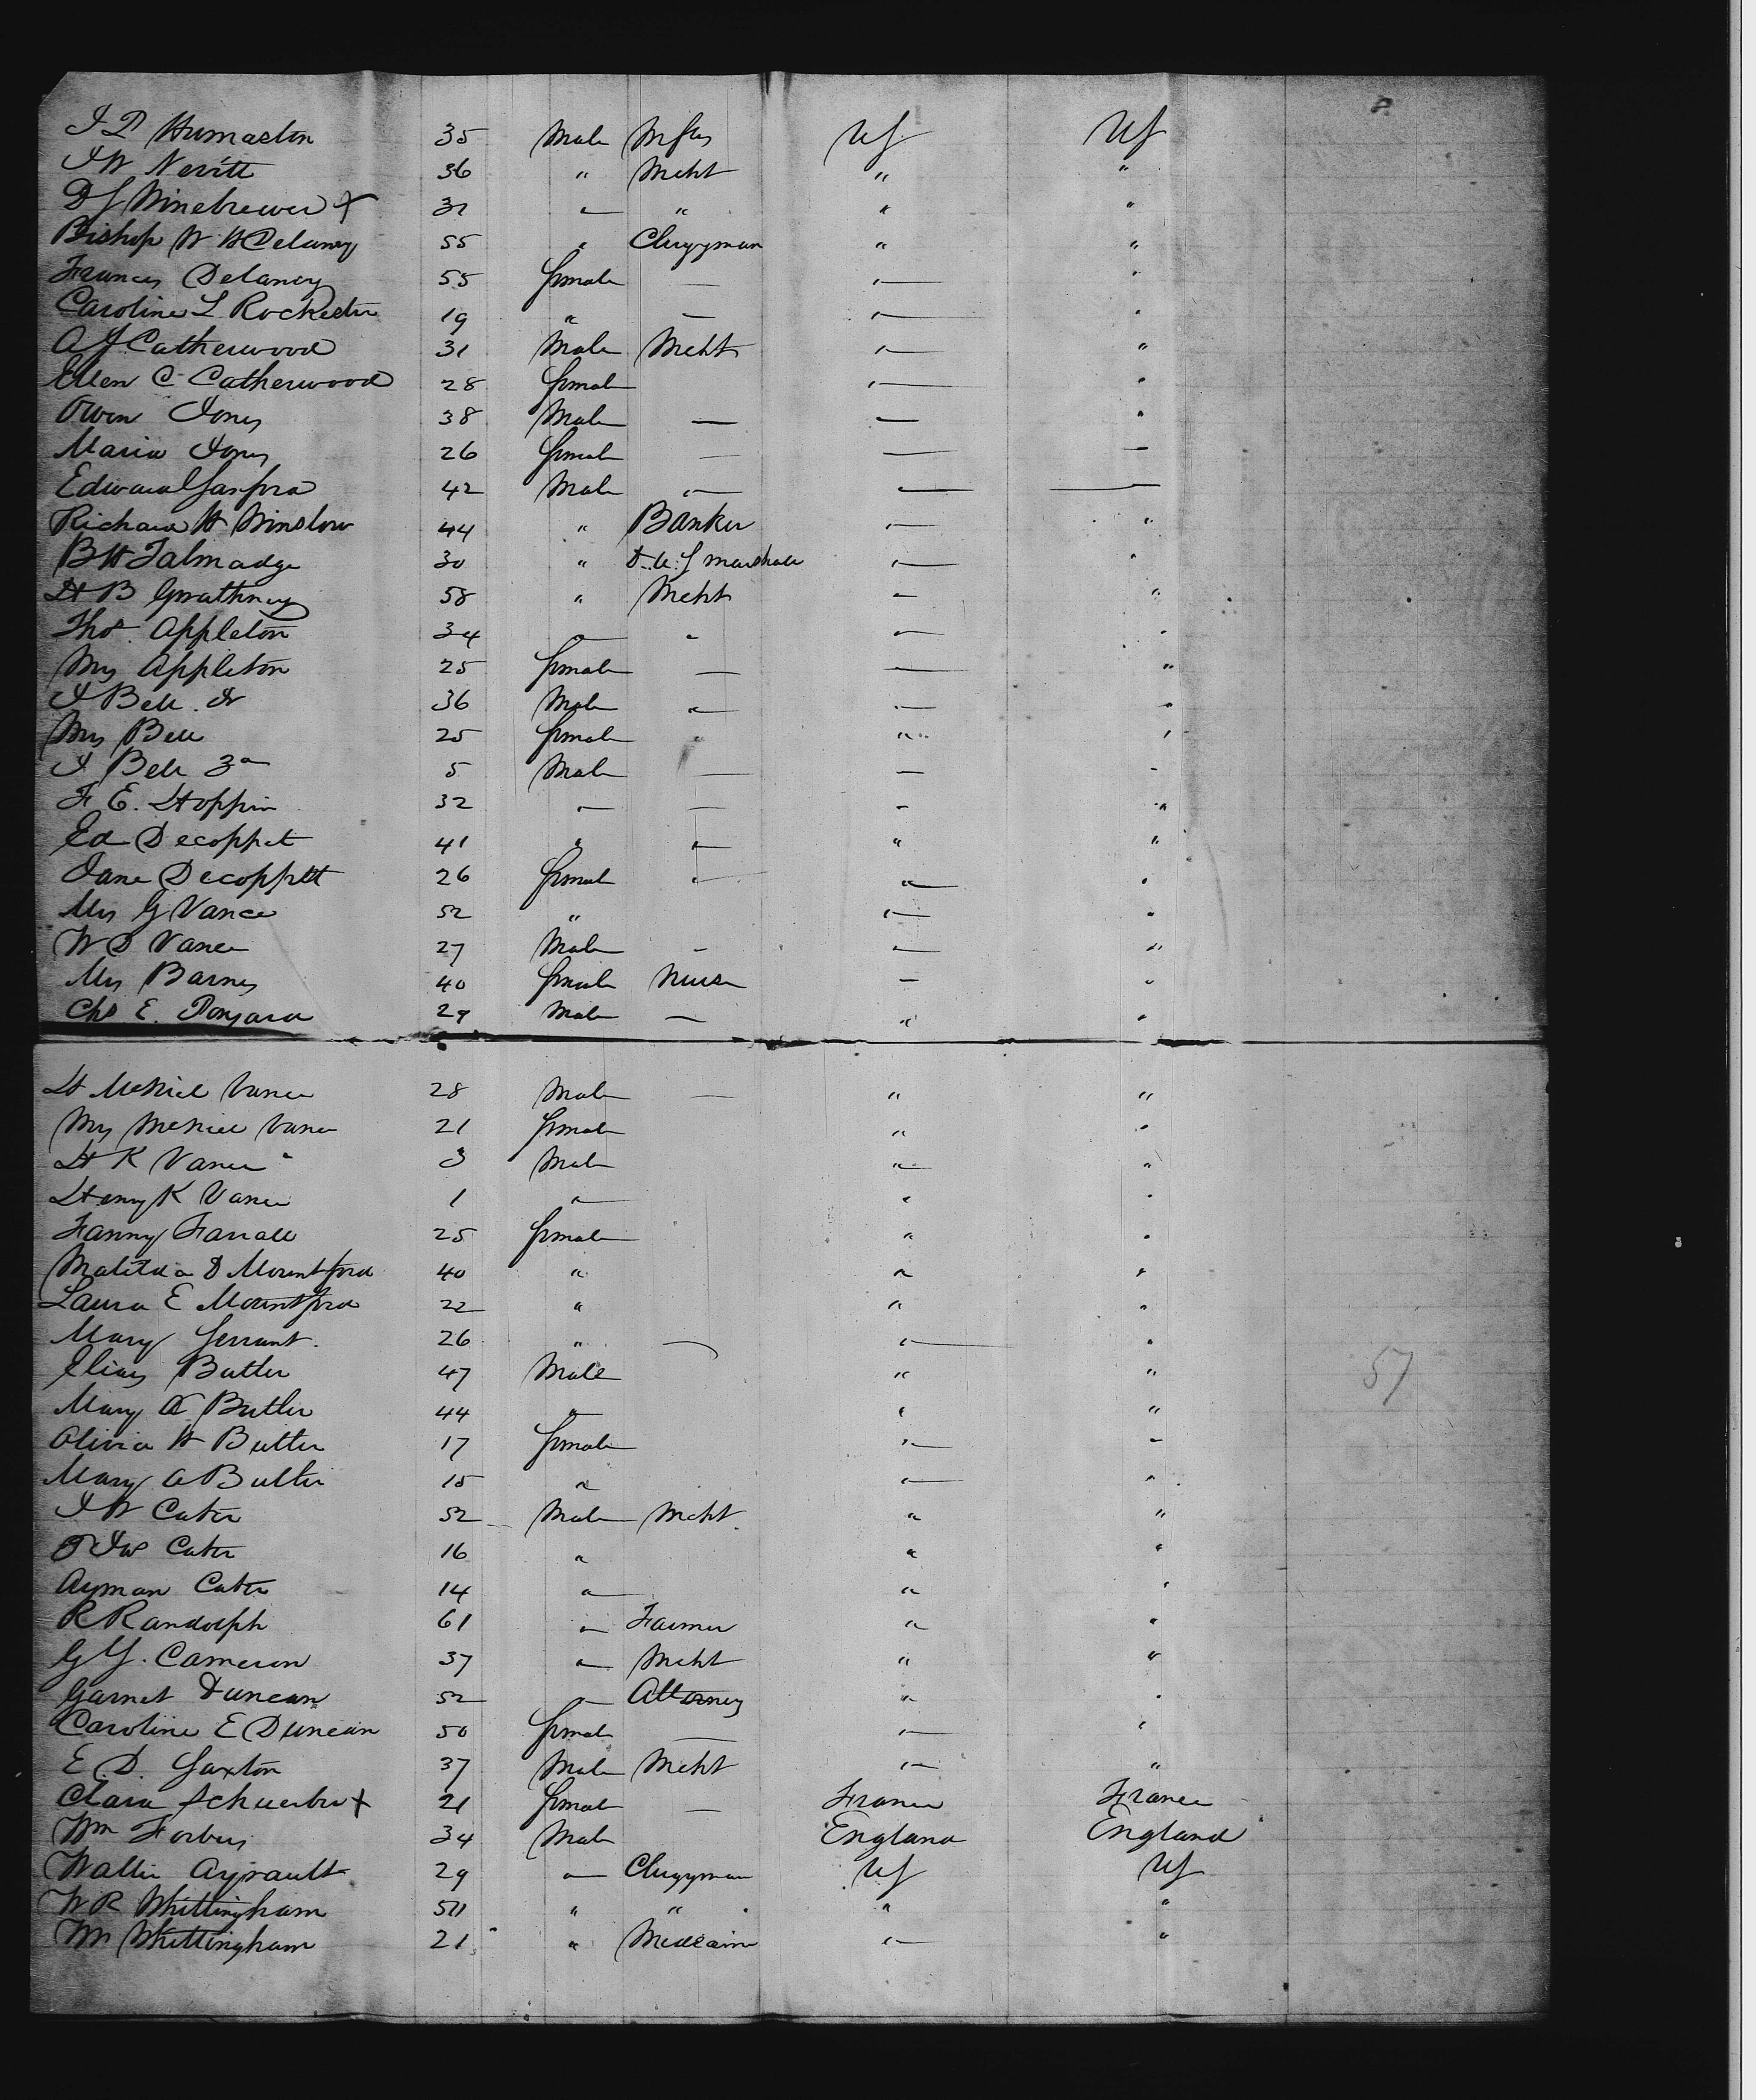 J P Humaston 35 Male Mfter US US
J W Nevitt 36 " Mcht " "
D S Winebrewer x 32 " " " "
Bishop W H Delancy 55 " Clergyman " "
Frances Delancy 55 female — " "
Caroline L Rochester 19 " — " "
A J Catherwood 31 Male Mcht " "
Ellen C Catherwood 28 female " "
Owen Jones 38 Male — — "
Maria Jones 26 female — — —
Edward Sanford 42 Male " — —
Richard H Winslow 44 " Banker " "
B H Talmadge 30 " D. U. S Marshall " "
H B Gwathney 58 " Mcht " "
Thos. Appleton 34 " " " "
Mrs Appleton 25 female — — "
J Bell Jr 36 Male " " "
Mrs Bell 25 female " " "
J Bell 3d 5 Male — — "
F E. Hoppin 32 " — " "
Ed Decoppet 41 " " " "
Jane Decoppett 26 female " " "
Mrs G Vance 52 " " "
W D Vance 27 Male - " "
Mrs Barnes 40 female Nurse — "
Chs E. 29 Male — " "
H McNiel Vance 28 Male — " "
Mrs McNiel Vance 21 female " "
H K Vance 3 Male " "
Henry K Vance 1 " " "
Fanny Farrall 25 female " "
Malitda D Mountford 40 " " "
Laura E Mountford 22 " " "
Mary Servant. 26 " — " "
Elias Butler 47 Male " "
Mary A Butler 44 " " "
Olivia H Butler 17 female " "
Mary A Butler 15 " " "
J W Cater 52 Male Mcht " "
Cater 16 " " "
Ayman Cater 14 " " "
R Randolph 61 " Farmer " "
G Y. Cameron 37 " Mcht " "
Garnet Duncan 52 " Attorney " "
Caroline E Duncan 50 female — " "
E. D. Saxton 37 Male Mcht " "
Clara x 21 female — France France
Wm Forbes 34 Male England England
Walter Ayrault 29 " Clergyman US US
W R Whittingham 50 " " " "
Wm Whittingham 21 " Medecaine " "
57